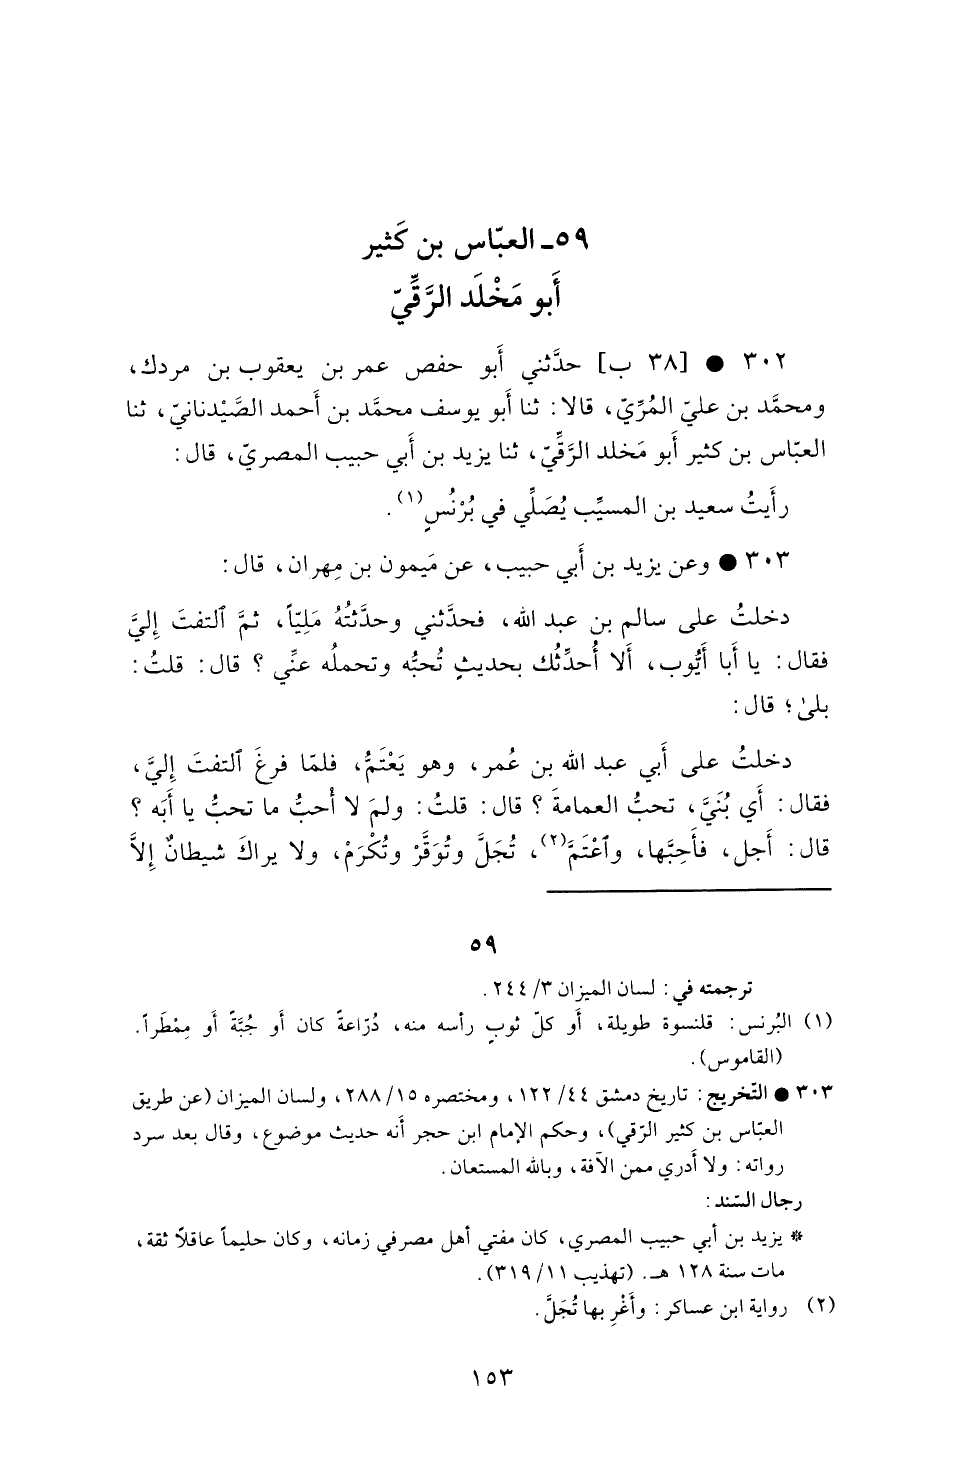 ٥٩ـ العبّاس بن كَثير
أَبو مَخْلَد الرَّقِّيّ
٣٠٢ ● [٣٨ ب] حدَّثني أَبو حفص عمر بن يعقوب بن مردك،
ومحمَّد بن عليّ المُرِّيّ، قالا: ثنا أَبو يوسف محمَّد بن أَحمد الصَّيْدنانيّ، ثنا
العبّاس بن كثير أَبو مَخلد الرَّقِّيّ، ثنا يزيد بن أَبي حبيب المصريّ، قال:
رأَيتُ سعيد بن المسيِّب يُصَلِّي في بُرْنُسٍ(١).
٣٠٣ ● وعن يزيد بن أَبي حبيب، عن مَيمون بن مِهران، قال:
دخلتُ على سالم بن عبد الله، فحدَّثني وحدَّثتُهُ مَلِيّاً، ثمَّ ٱلتفتَ إِليَّ
فقال: يا أَبا أَيُّوب، أَلا أُحدِّثُك بحديثٍ تُحبُّه وتحملُه عنِّي؟ قال: قلتُ:
بلىٰ؛ قال:
دخلتُ على أَبي عبد الله بن عُمر، وهو يَعْتَمُّ، فلمّا فرغَ ٱلتفتَ إِليَّ،
فقال: أَي بُنَيَّ، تحبُّ العمامةَ؟ قال: قلتُ: ولمَ لا أُحبُّ ما تحبُّ يا أَبَه؟
قال: أَجل، فأَحِبَّها، وٱعْتَمَّ(٢)، تُجَلَّ وتُوَقَّرْ وتُكْرَمْ، ولا يراكَ شيطانٌ إِلاَّ
٥٩
ترجمته في: لسان الميزان ٣/ ٢٤٤.
(١) البُرنس: قلنسوة طويلة، أَو كلّ ثوبٍ رأسه منه، دُرّاعةً كان أَو جُبَّةً أَو مِمْطَراً.
(القاموس).
٣٠٣ ● التّخريج: تاريخ دمشق ٤٤/ ١٢٢، ومختصره ١٥/ ٢٨٨، ولسان الميزان (عن طريق
العبّاس بن كثير الرّقي)، وحكم الإمام ابن حجر أنه حديث موضوع، وقال بعد سرد
رواته: ولا أدري ممن الآفة، وبالله المستعان.
رجال السّند:
* يزيد بن أبي حبيب المصري، كان مفتي أهل مصر في زمانه، وكان حليماً عاقلاً ثقة،
مات سنة ١٢٨ هـ. (تهذيب ١١/ ٣١٩).
(٢) رواية ابن عساكر: وأَعْرِ بها تُجَلَّ.
١٥٣